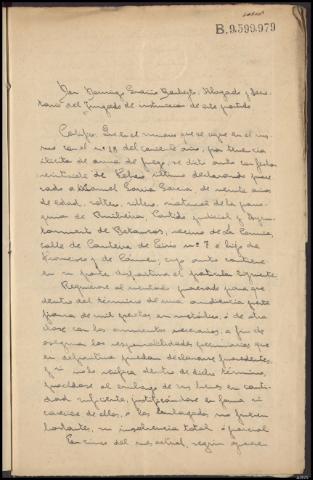 B.9.599.979
Don Domingo Abogado y Secre-
tario del Juzgado de instrucción de este partido
Certifico: Que en el sumario que se sigue en el mis-
mo con el nº 18 del corriente año, por tenencia
ilícita de arma de fuego, se dictó auto con fecha
veintisiete de Febrero último declarando proce-
sado a Manuel García de veinte años
de edad, soltero, natural de la parro-
quia de Partido judicial y Ayun-
tamiento de Betanzos, vecino de La Coruña,
calle de nº 7 é hijo de
Francisco y de Carmen; cuyo auto contiene
en su parte dispositiva el particular siguiente
Requiérase al mentado procesado para que
dentro del término de una audiencia preste
fianza de mil pesetas en metálico, ó de otra
clase con los aumentos necesarios, a fin de
asegurar las responsabilidades pecuniarias que
en definitiva puedan declararse procedentes,
y si no lo verifica dentro de dicho término,
procédase al embargo de sus bienes en canti-
dad suficiente, justificándose en forma si
careciese de ellos, o los embargados no fueren
bastante, su insolvencia total ó parcial
En cinco del mes actual, según